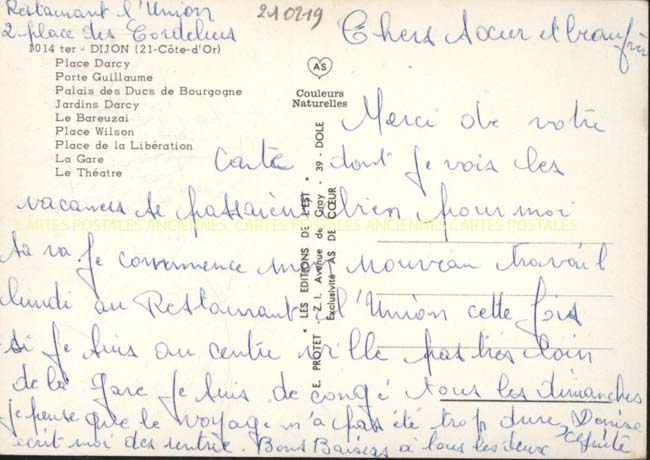 Restaurant l'Union
2 place des Cordeliers
210219
1014 ter - DIJON (21-Côte-d'Or)
Place Darcy
Porte Guillaume
Palais des Ducs de Bourgogne
Jardins Darcy
Le Bareuzai
Place Wilson
Place de la Libération
La Gare
Le Théatre
AS
Couleurs
Naturelles
" LES EDITIONS DE L'EST "
E. PROTET - Z. I. Avenue de Gray - 39 - DOLE
Exclusivité AS DE CŒUR
Chers sœur et beaufrère
Merci de votre
carte dont je vois les
vacances se passaient bien pour moi
sa va je commence mon nouveau travail
lundi au Restaurant l'Union cette fois
si je suis au centre ville pas très loin
de la gare je suis de congé tous les dimanches
je pense que le voyage n'a pas été trop dure Denise
écrit moi des rentrée. Bons Baisers à tous les deux
CARTES POSTALES ANCIENNES CARTES POSTALES ANCIENNES CARTES POSTALES